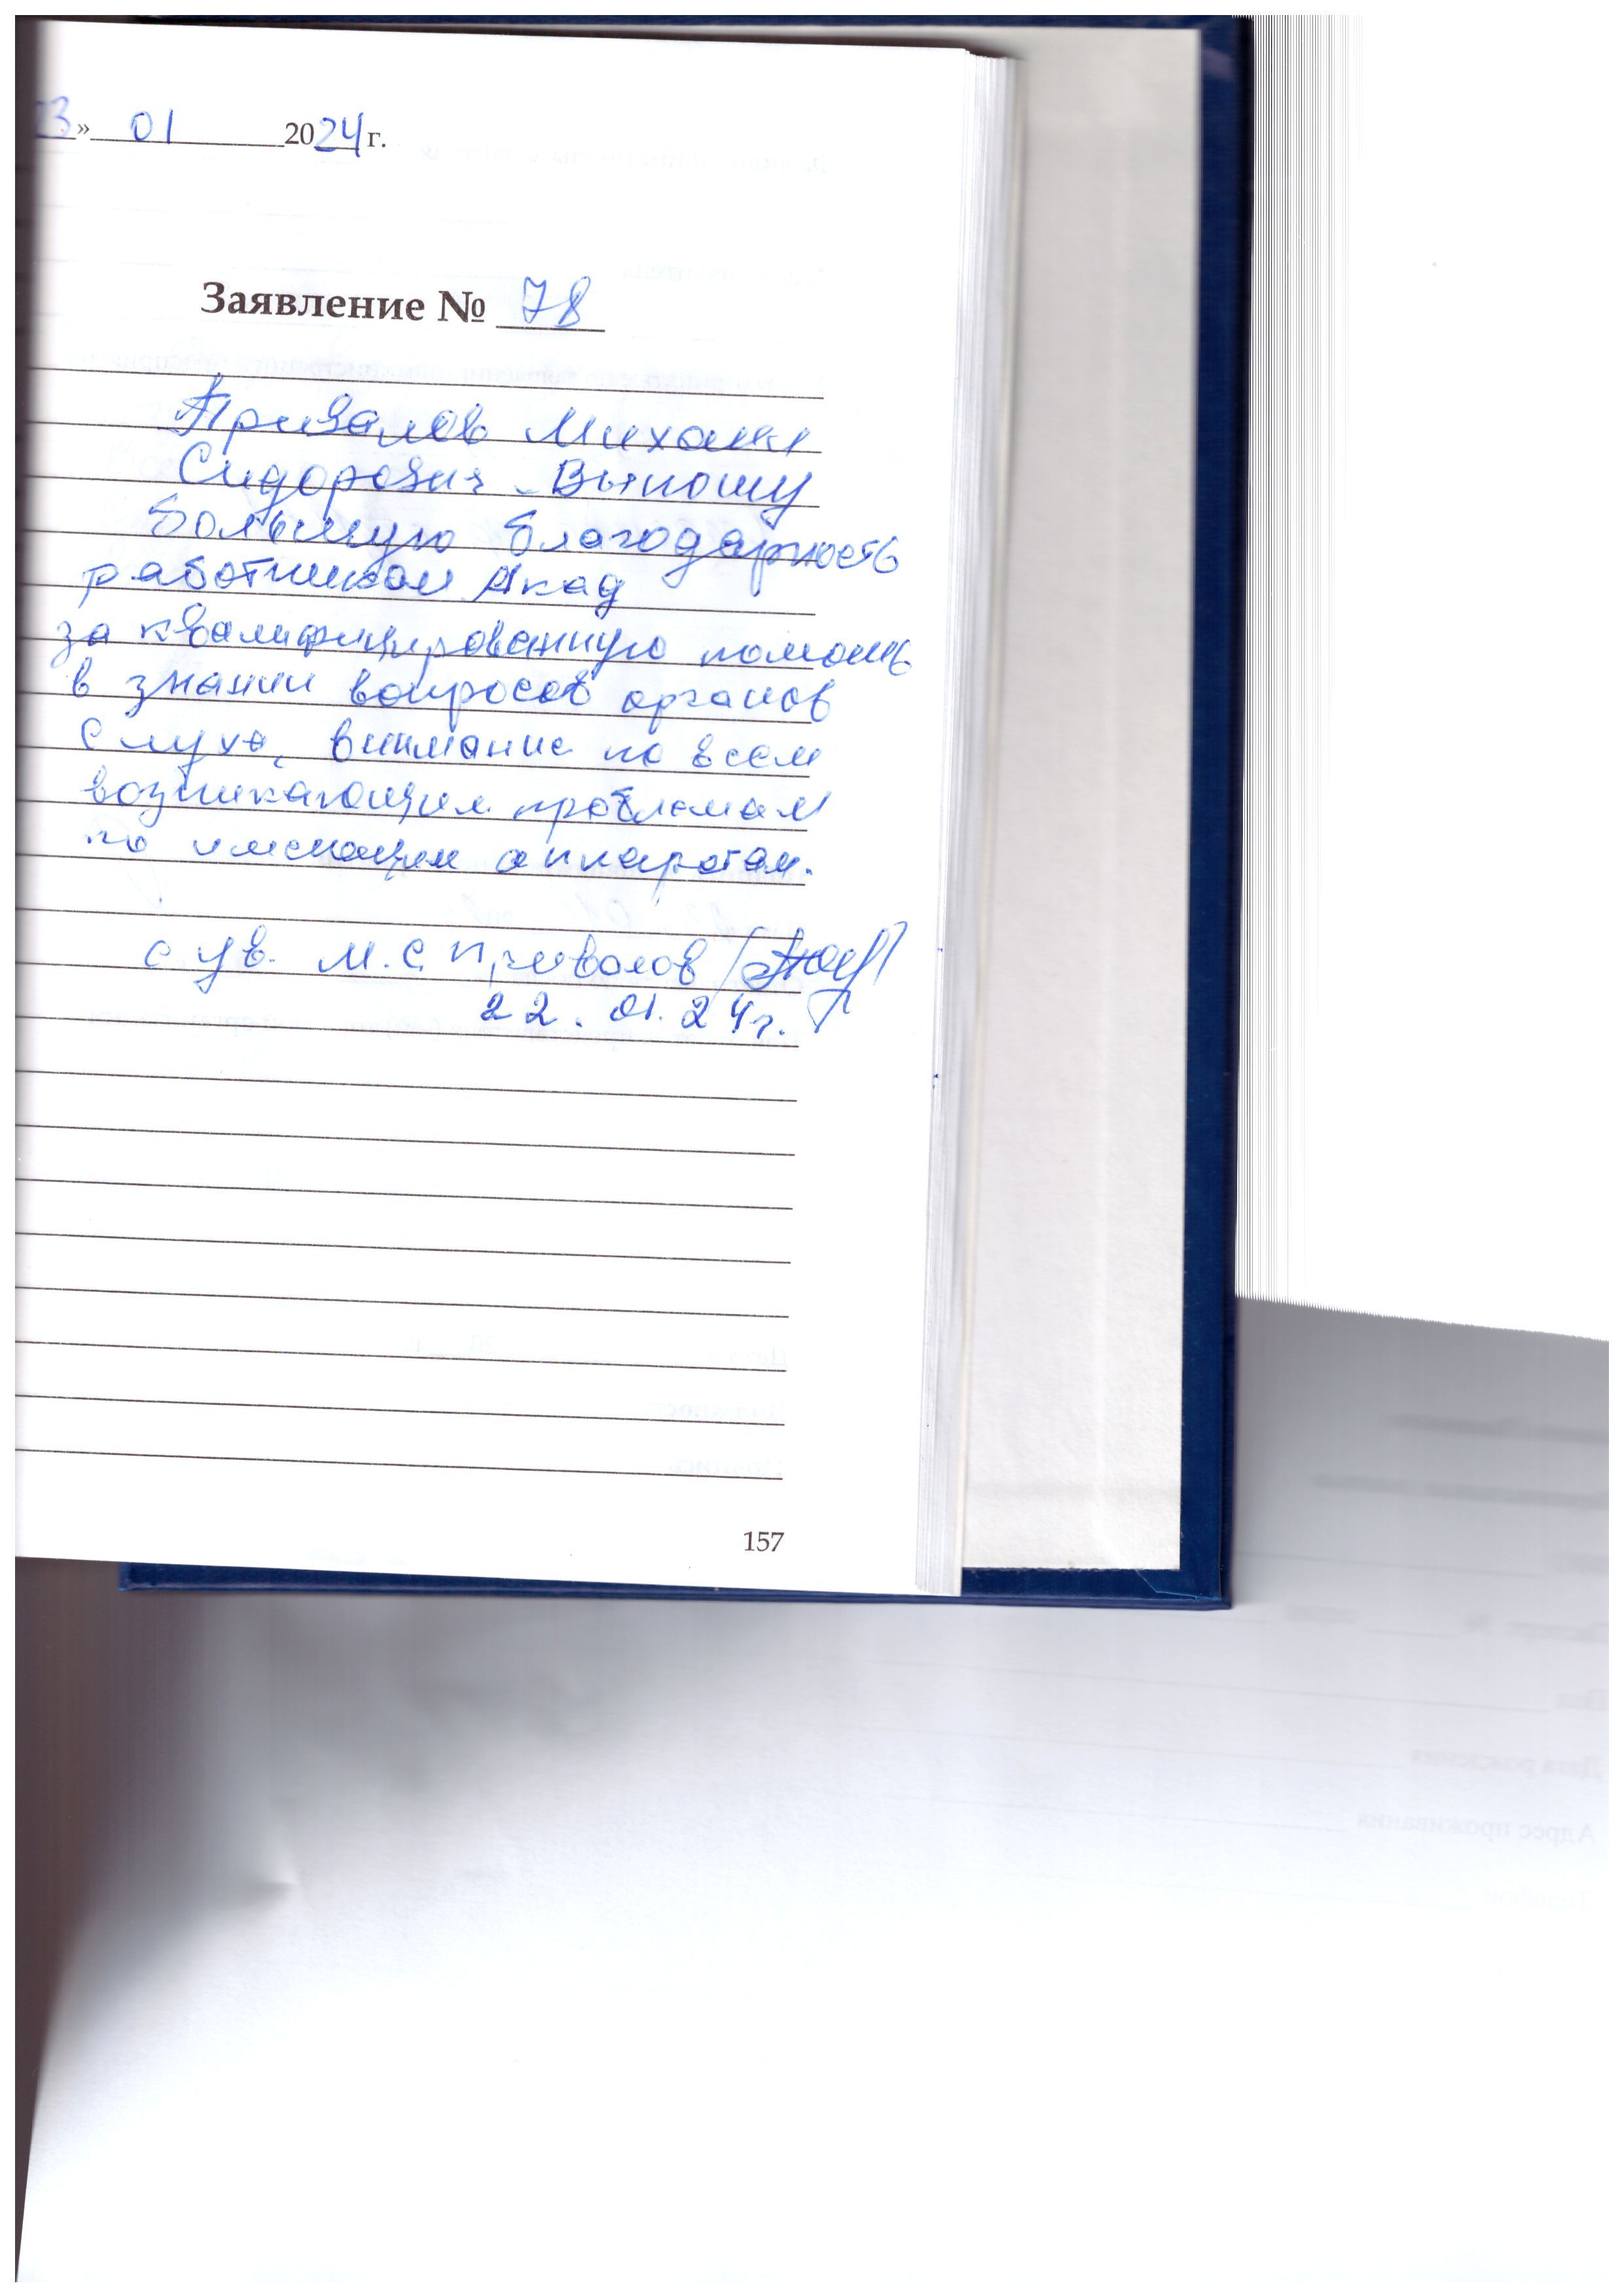 23» 01 2024 г.
Заявление № 78
Привалов Михаил
Сидорович. Выношу
большую благодарность
работникам Акад
за квалифицированную помощь
в знании вопросов органов
слуха, внимание по всем
возникающим проблемам
по имеющим аппаратам.
с ув. М.С. Привалов
22.01.24г.
157
Дата рождения
Адрес проживания